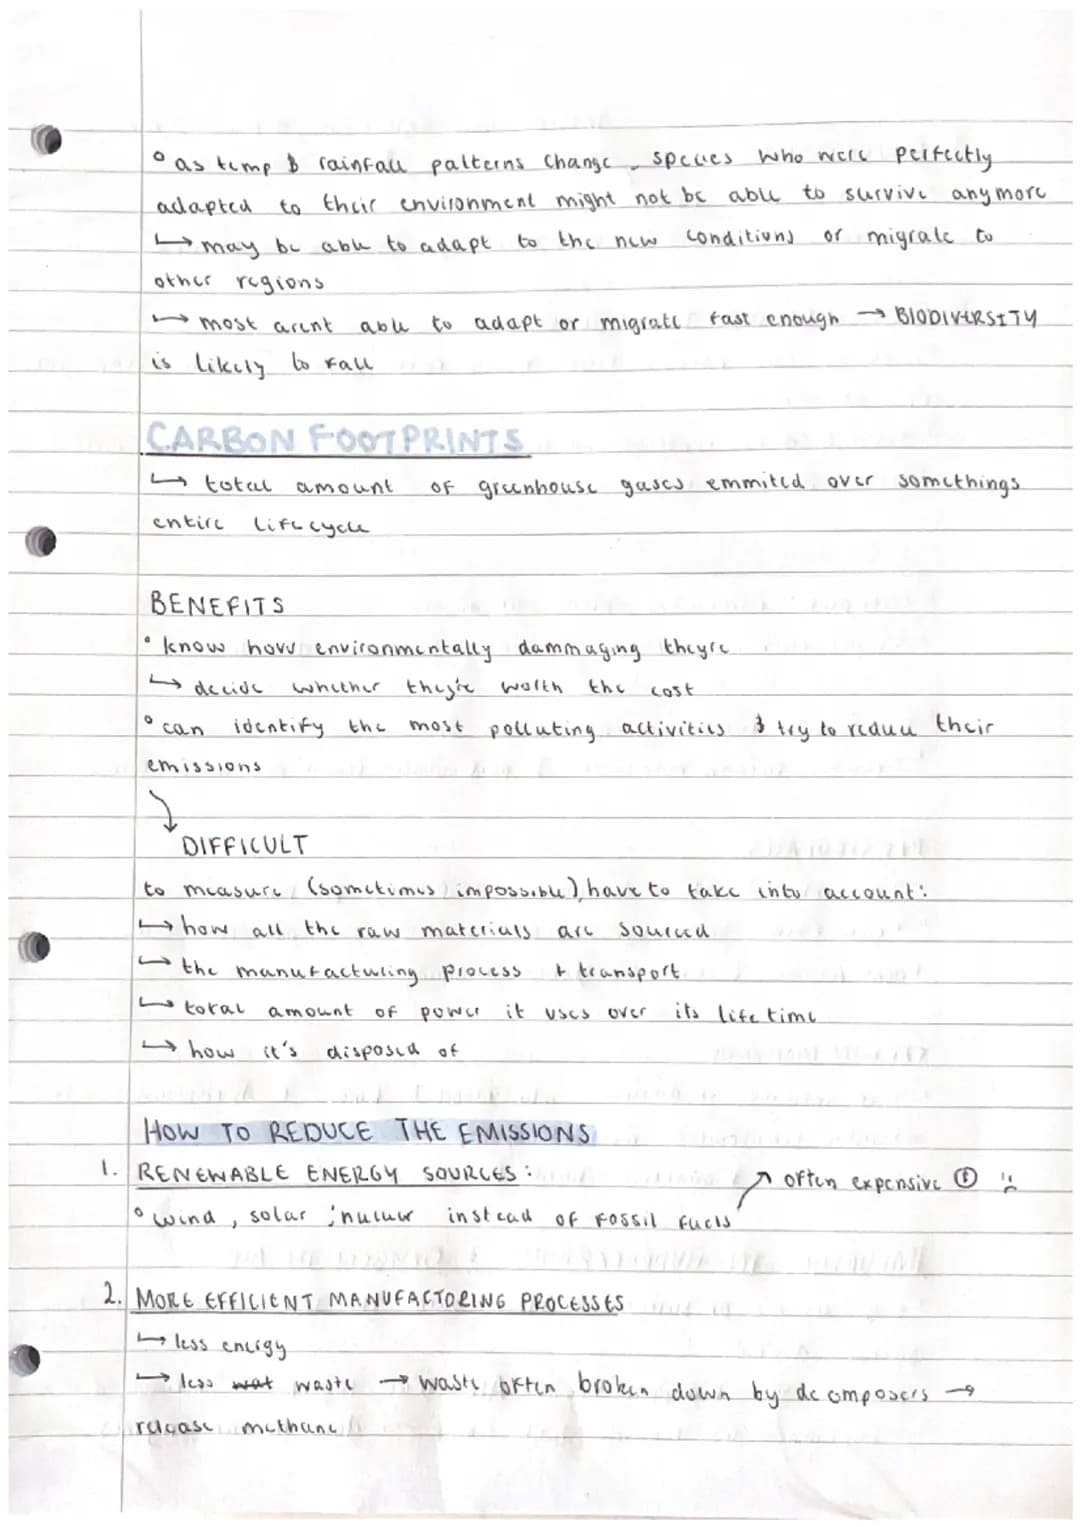 ° as temp & rainfall patterns change, species who were perfectly
adapted to their environment might not be able to survive anymore
↳ may be able to adapt to the new conditions or migrate to
other regions
↳ most arent able to adapt or migrate fast enough → BIODIVERSITY
is likely to fall
CARBON FOOTPRINTS
↳ total amount of greenhouse gases emmited over somethings
entire lifecycle
BENEFITS
° know how environmentally dammaging theyre
↳ decide whether they're worth the cost
° can identify the most polluting activities & try to reduce their
emissions
↓
DIFFICULT
to measure (sometimes impossible), have to take into account:
↳ how all the raw materials are sourced
↳ the manufacturing process + transport
↳ total amount of power it uses over its lifetime
↳ how it's disposed of
HOW TO REDUCE THE EMISSIONS
1. RENEWABLE ENERGY SOURCES:
↗ often expensive
° wind, solar, nuclear instead of fossil fuels
2. MORE EFFICIENT MANUFACTORING PROCESSES
↳ less energy
↳ less wat waste → waste often broken down by decomposers →
release methane